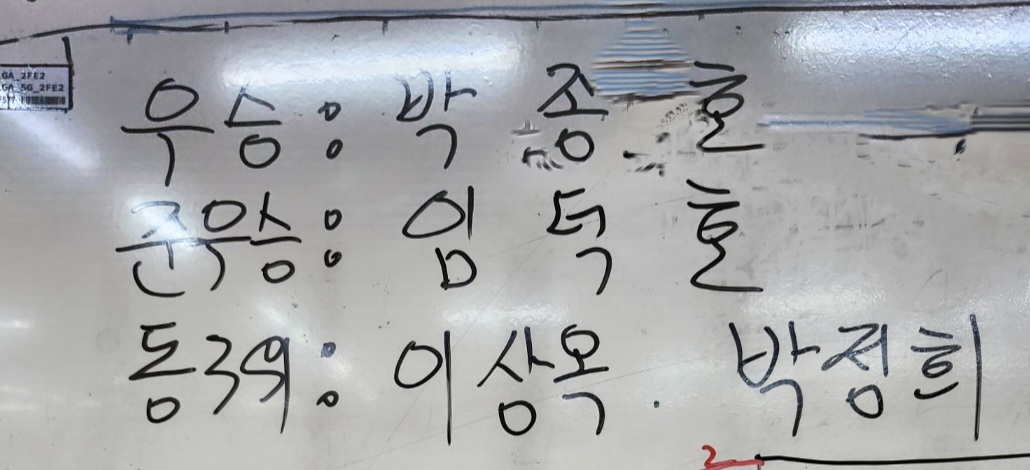 GA_2FE2
GA_5G_2FE2
우승: 박종흘
준우승: 임덕흘
동3위: 이상목. 박정희
2